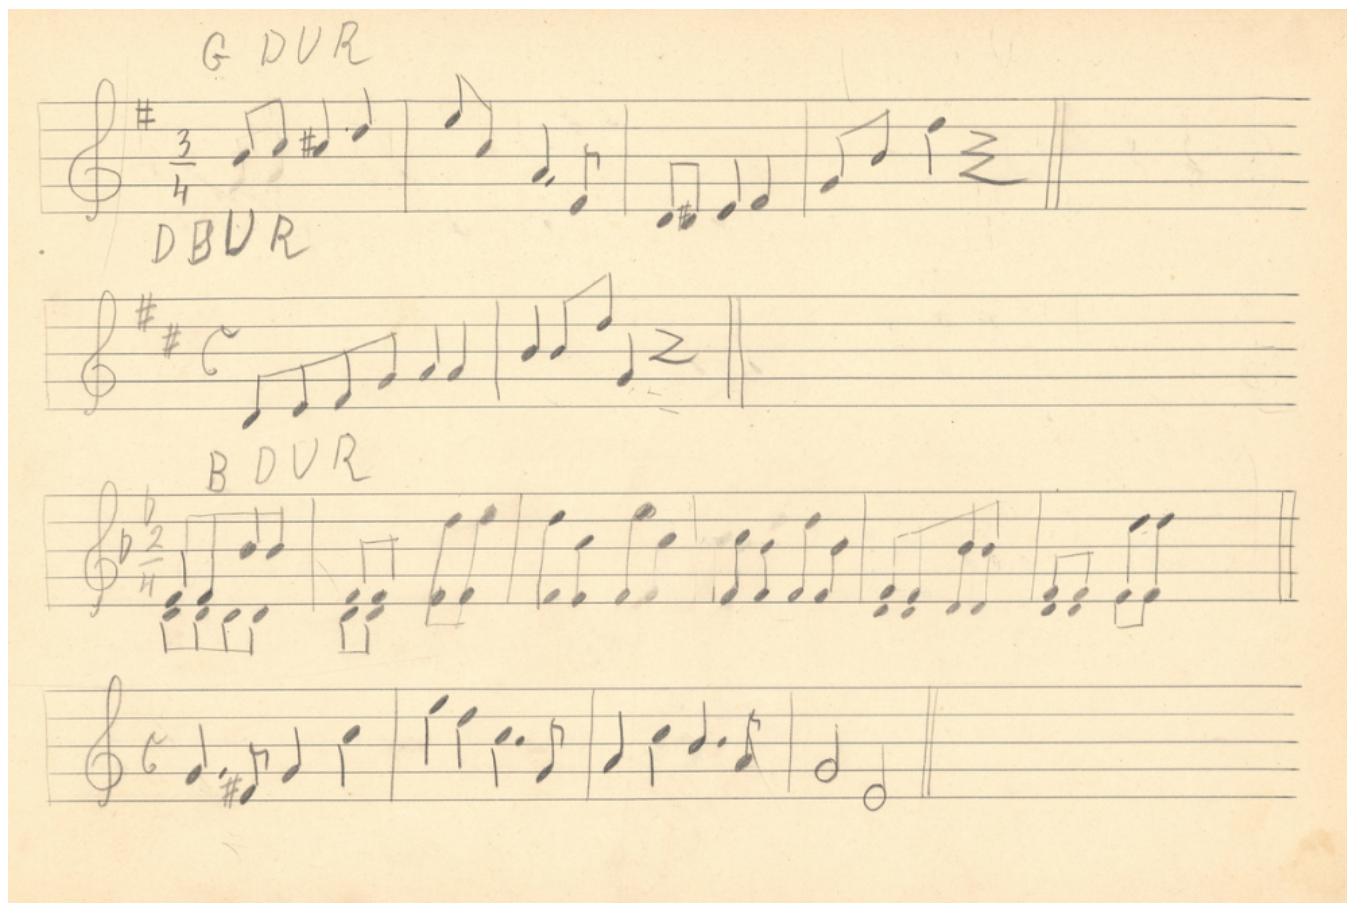 G DUR
3
4
D BUR
B DUR
2
4